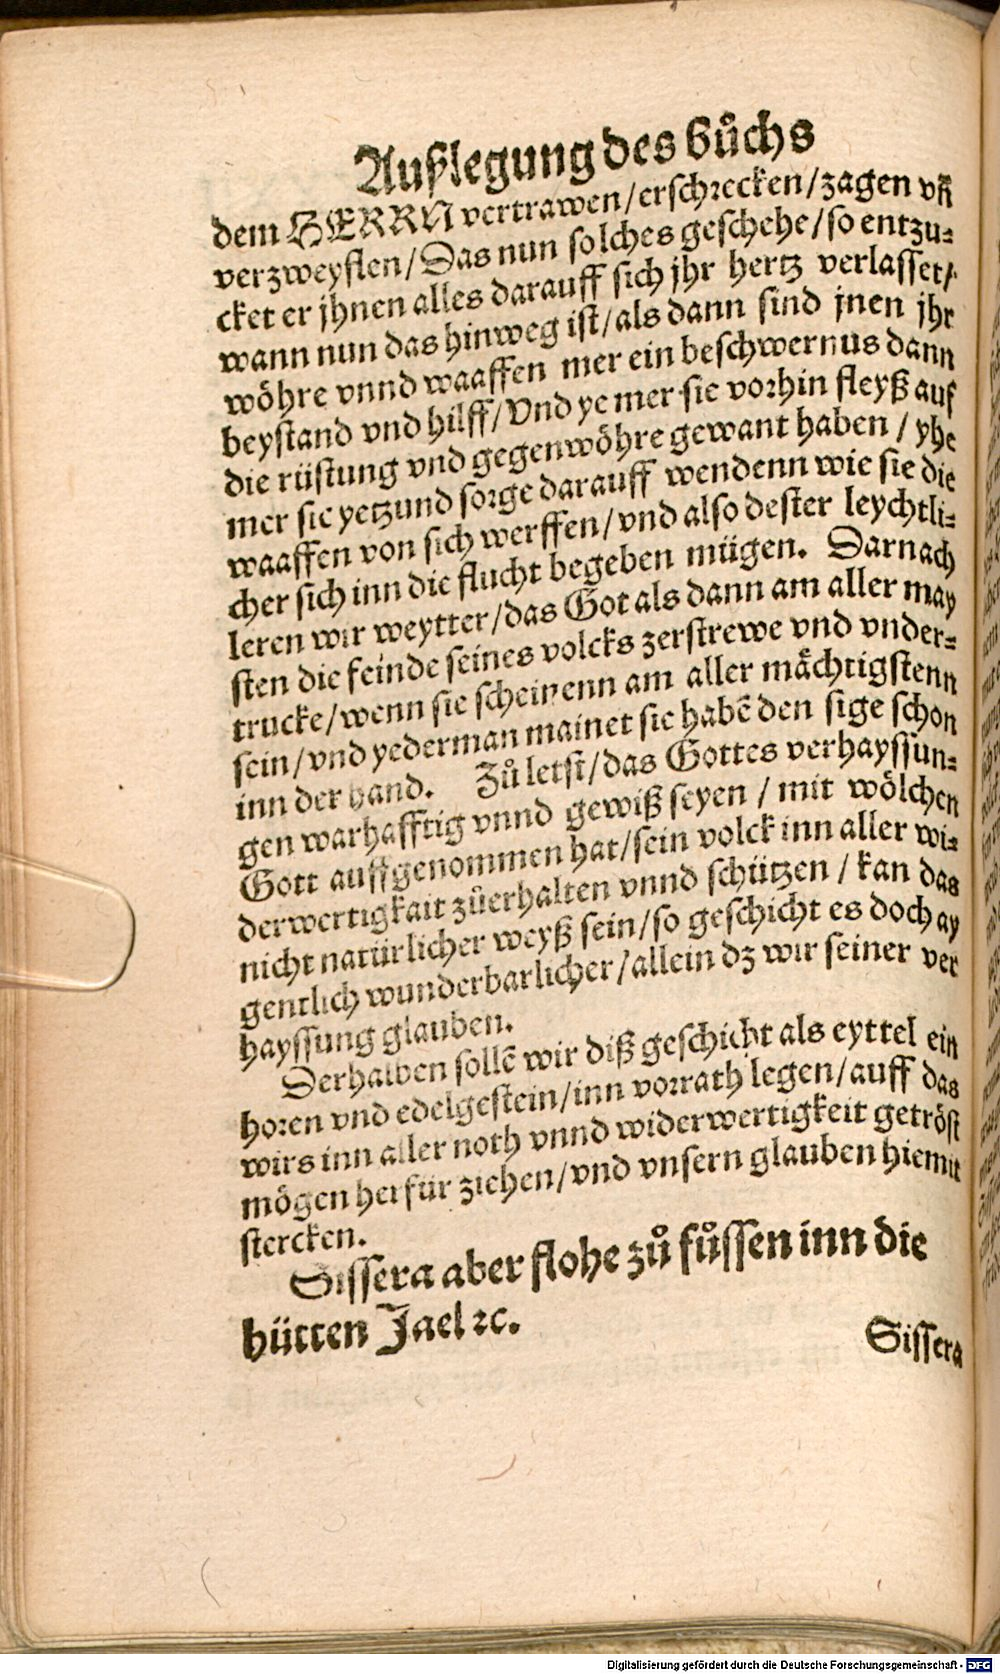 Außlegung des bůchs
dem HERRN vertrawen/erschrecken/zagen vñ
verzweyflen/Das nun solches geschehe/so entzu-
cket er jhnen alles darauff sich jhr hertz verlasset/
wann nun das hinweg ist/als dann sind jnen jhr
wöhre vnnd waaffen mer ein beschwernus dann
beystand vnd hilff/Vnd ye mer sie vorhin fleyß auf
die rüstung vnd gegenwöhre gewant haben / yhe
mer sie yetzund sorge darauff wendenn wie sie die
waaffen von sich werffen/vnd also dester leychtli-
cher sich inn die flucht begeben mügen. Darnach
leren wir weytter/das Got als dann am aller may
sten die feinde seines volcks zerstrewe vnd vnder-
trucke/wenn sie scheinenn am aller mächtigstenn
sein/vnd yederman mainet sie habē den sige schon
inn der hand. Zů letst/das Gottes verhayssun-
gen warhafftig vnnd gewiß seyen / mit wölchen
Gott auffgenommen hat/sein volck inn aller wi-
derwertigkait zůerhalten vnnd schützen / kan das
nicht natürlicher weyß sein/so geschicht es doch ay
gentlich wunderbarlicher/allein dz wir seiner ver
hayssung glauben.
Derhalben sollē wir diß geschicht als eyttel ein
horen vnd edelgestein/inn vorrath legen/auff das
wirs inn aller noth vnnd widerwertigkeit getröst
mögen herfür ziehen/vnd vnsern glauben hiemit
stercken.
Sissera aber flohe zů fůssen inn die
hütten Jael ꝛc.
Sissera
Digitalisierung gefördert durch die Deutsche Forschungsgemeinschaft - DFG